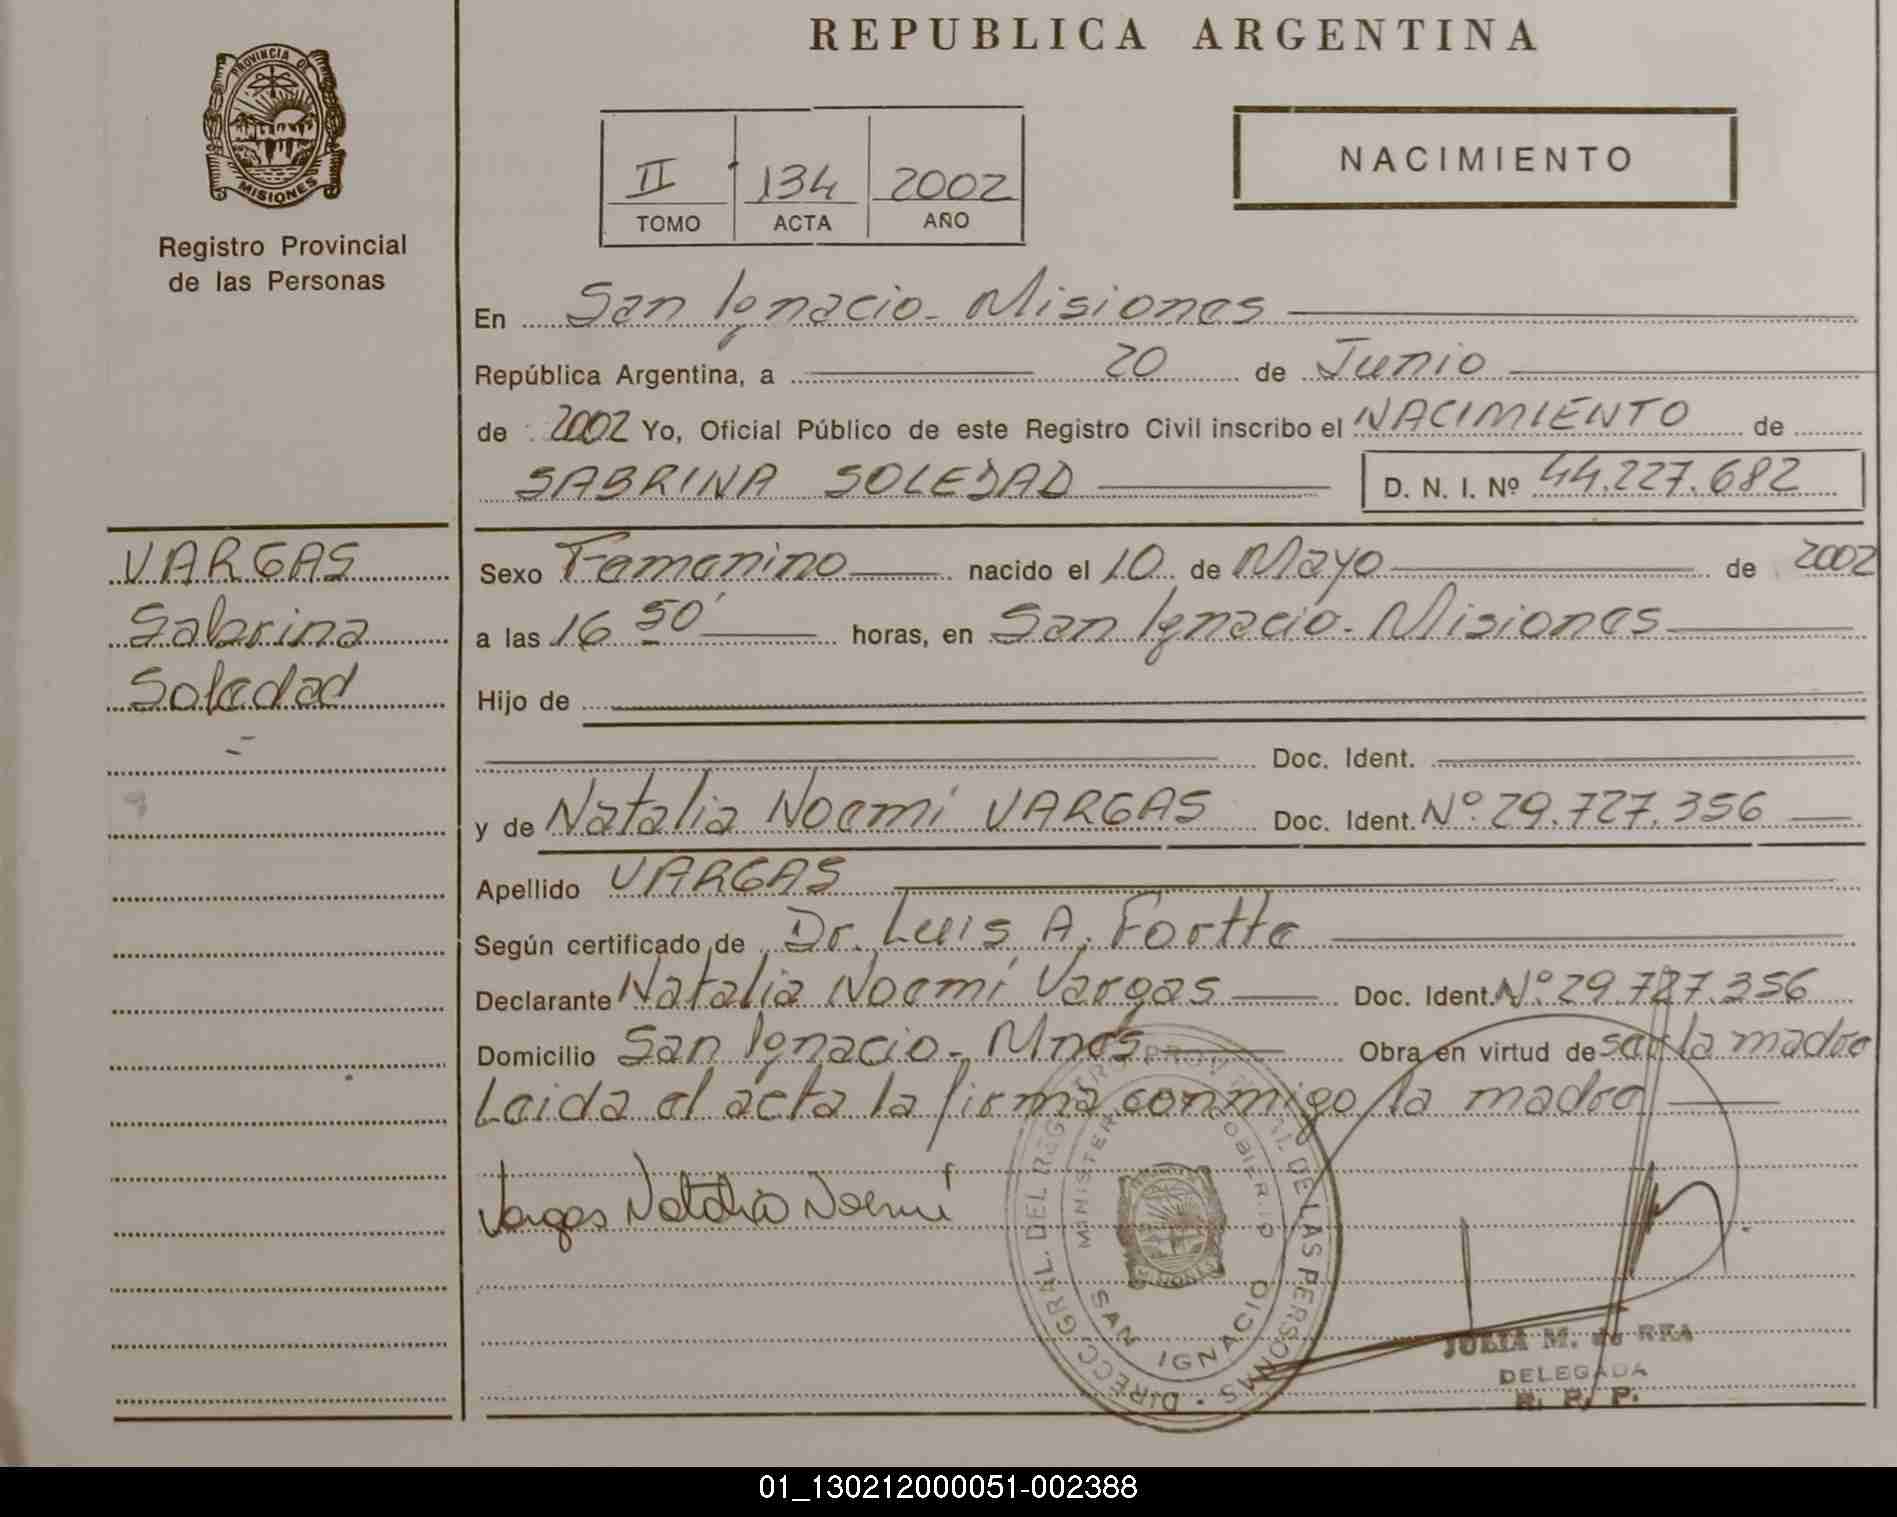 REPUBLICA ARGENTINA
PROVINCIA DE
MISIONES
Registro Provincial
de las Personas
II 134 2002
TOMO ACTA AÑO
NACIMIENTO
En San Ignacio - Misiones
República Argentina, a 20 de Junio
de 2002 Yo, Oficial Público de este Registro Civil inscribo el NACIMIENTO de
SABRINA SOLEDAD D. N. I. Nº 44.227.682
VARGAS
Sabrina
Soledad
Sexo Femenino nacido el 10 de Mayo de 2002
a las 16 50' horas, en San Ignacio - Misiones
Hijo de
Doc. Ident.
y de Natalia Noemí VARGAS Doc. Ident. Nº 29.727.356
Apellido VARGAS
Según certificado de Dr. Luis A. Fortte
Declarante Natalia Noemí Vargas Doc. Ident. Nº 29.727.356
Domicilio San Ignacio - Mnes Obra en virtud de ser la madre
Leida el acta la firma conmigo la madre
Vargas Natalia Noemí
DIRECC. GRAL. DEL REGISTRO PROVINCIAL DE LAS PERSONAS
MINISTERIO GOBIERNO
SAN IGNACIO
MISIONES
JULIA M. de REA
DELEGADA
R. P. P.
01_130212000051-002388